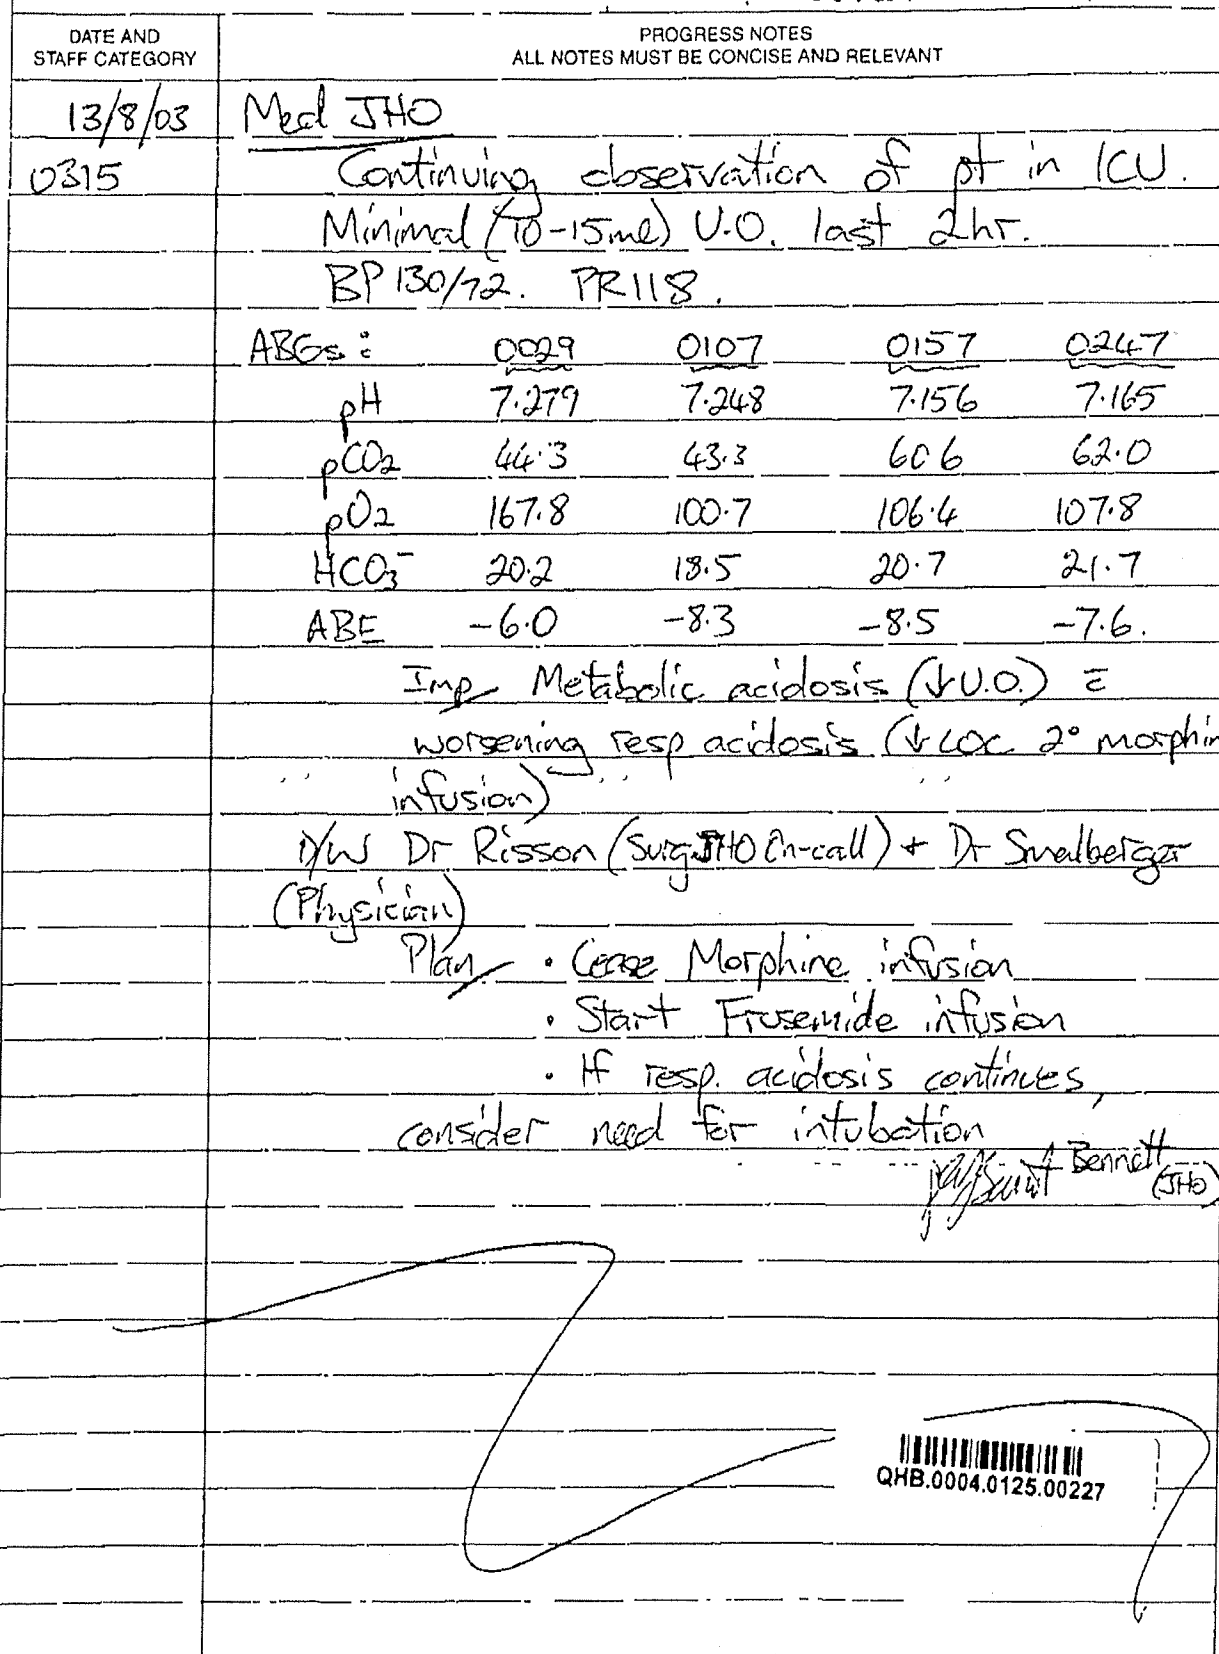 DATE AND
STAFF CATEGORY
PROGRESS NOTES
ALL NOTES MUST BE CONCISE AND RELEVANT
13/8/03 Med JHO
0315 Continuing observation of pt in ICU.
Minimal (10-15ml) U.O. last 2hr.
BP 130/72. PR 118.
ABGs: 0029 0107 0157 0247
pH 7.279 7.248 7.156 7.165
pCO2 44.3 43.3 60.6 62.0
pO2 167.8 100.7 106.4 107.8
HCO3- 20.2 18.5 20.7 21.7
ABE -6.0 -8.3 -8.5 -7.6.
Imp Metabolic acidosis (↓U.O.) c̄
worsening resp acidosis (↓LOC 2° morphin
infusion)
D/W Dr Risson (Surg JHO On-call) + Dr Smalberger
(Physician)
Plan • Cease Morphine infusion
• Start Frusemide infusion
• If resp. acidosis continues,
consider need for intubation
Bennett
(JHO)
QHB.0004.0125.00227